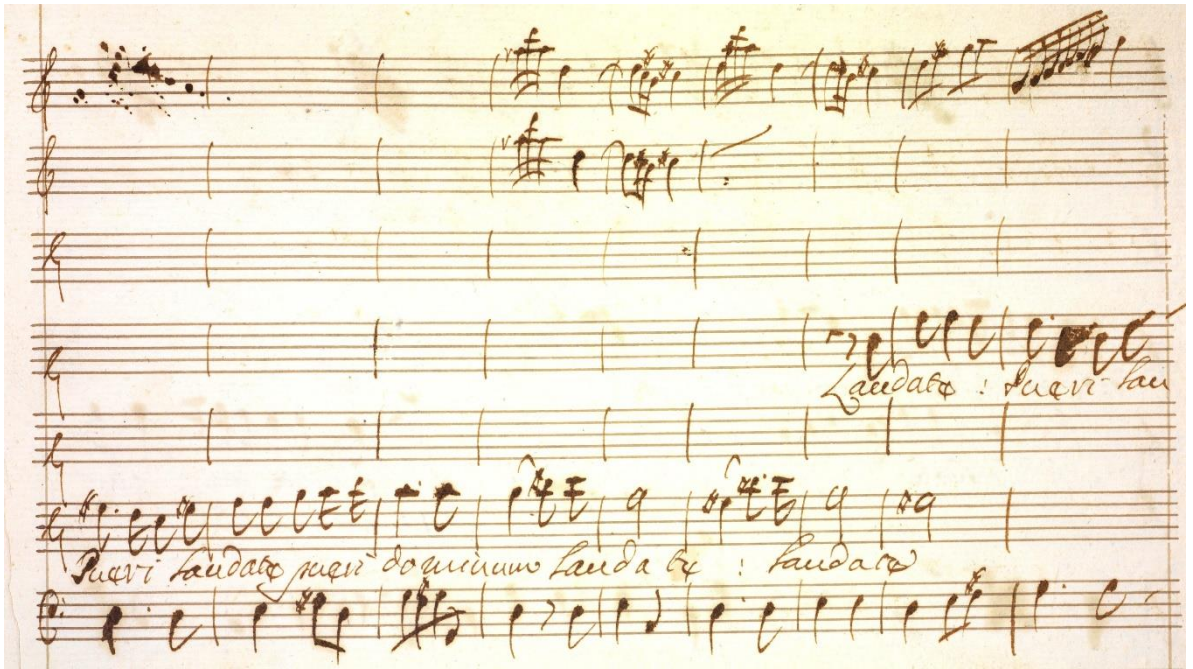 Laudate : Pueri lau
Pueri Laudate pueri dominum Laudate : Laudate